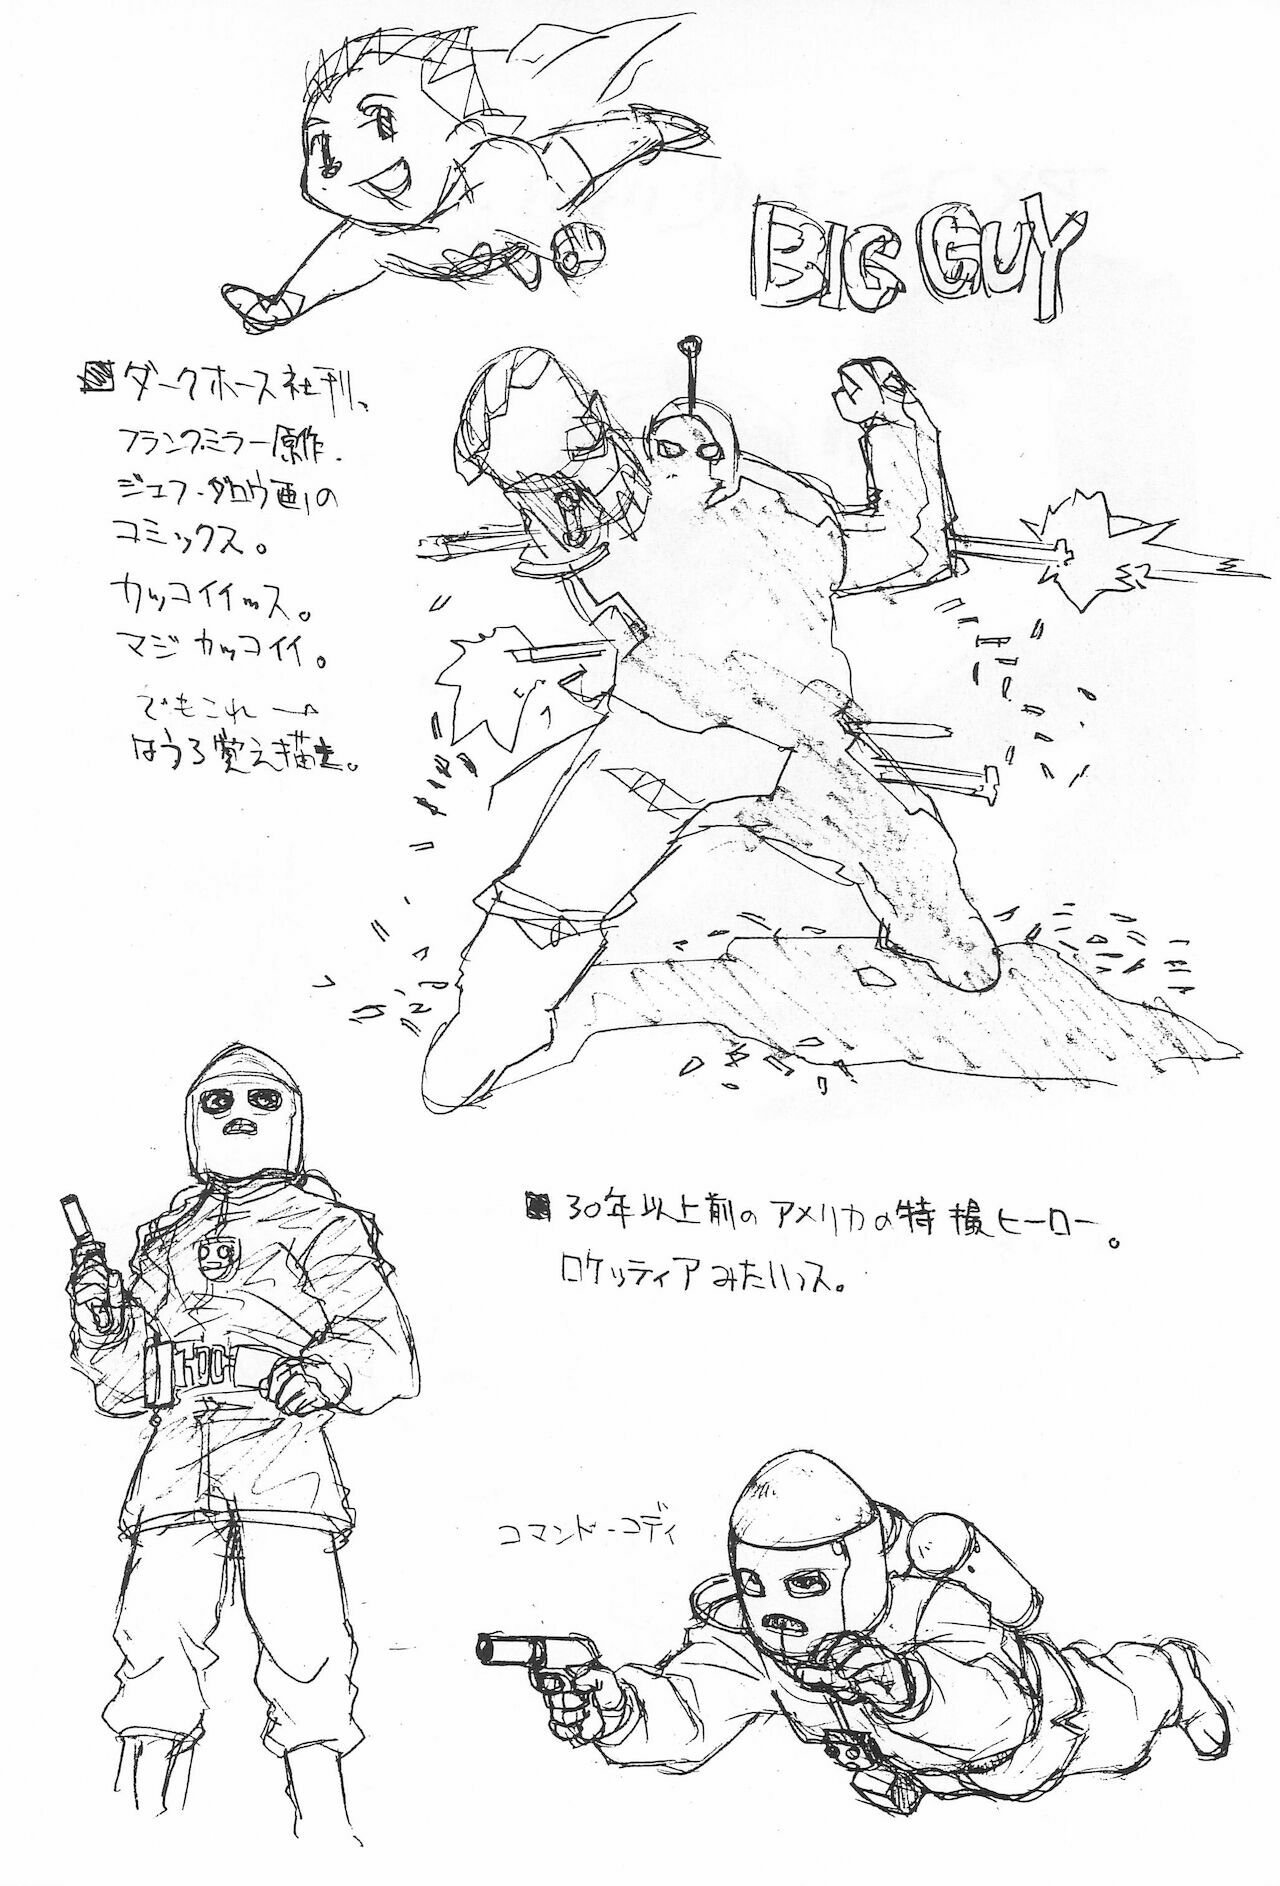 BIG GUY
■ダークホース社刊、
フランク・ミラー原作.
ジェフ・ダロウ画の
コミックス。
カッコイイッス。
マジカッコイイ。
でもこれ→
はうろ覚え描き。
■30年以上前のアメリカの特撮ヒーロー。
ロケッティアみたいっス。
コマンド-コディ